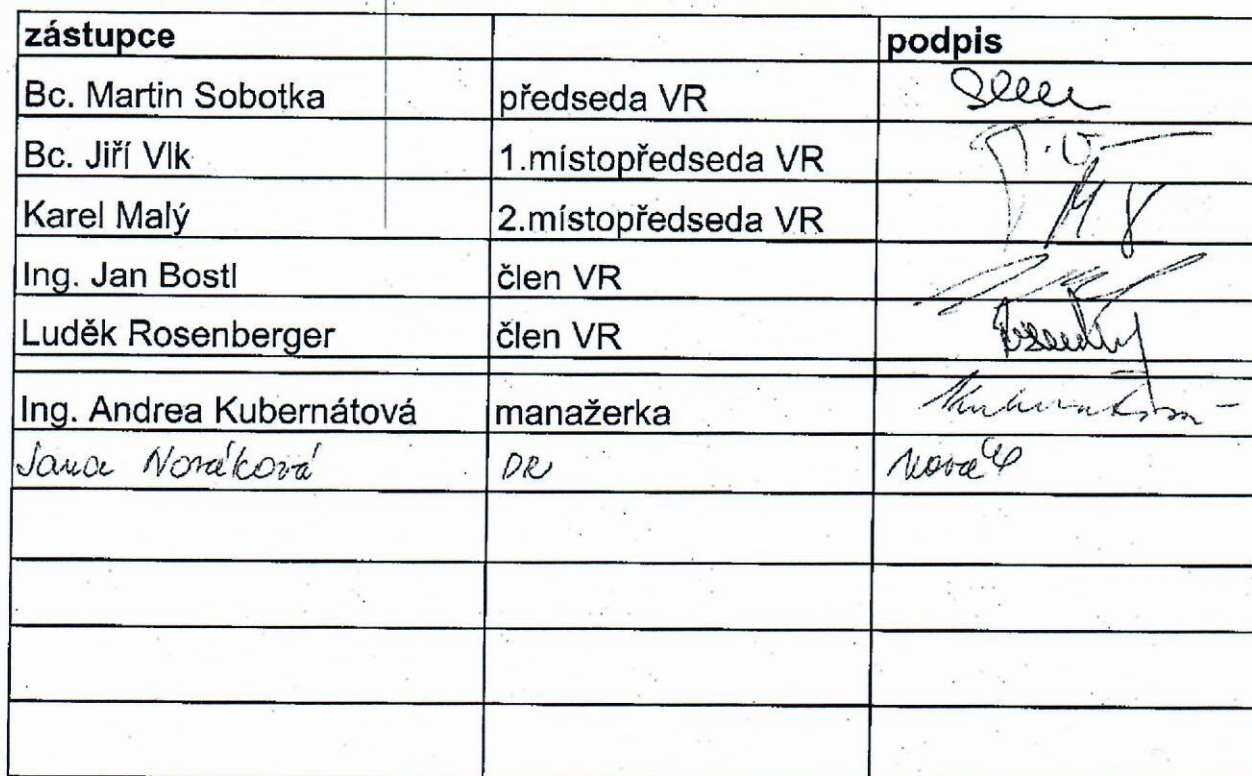 zástupce podpis
Bc. Martin Sobotka předseda VR
Bc. Jiří Vlk 1.místopředseda VR
Karel Malý 2.místopředseda VR
Ing. Jan Bostl člen VR
Luděk Rosenberger člen VR
Ing. Andrea Kubernátová manažerka
Jana Nováková DR